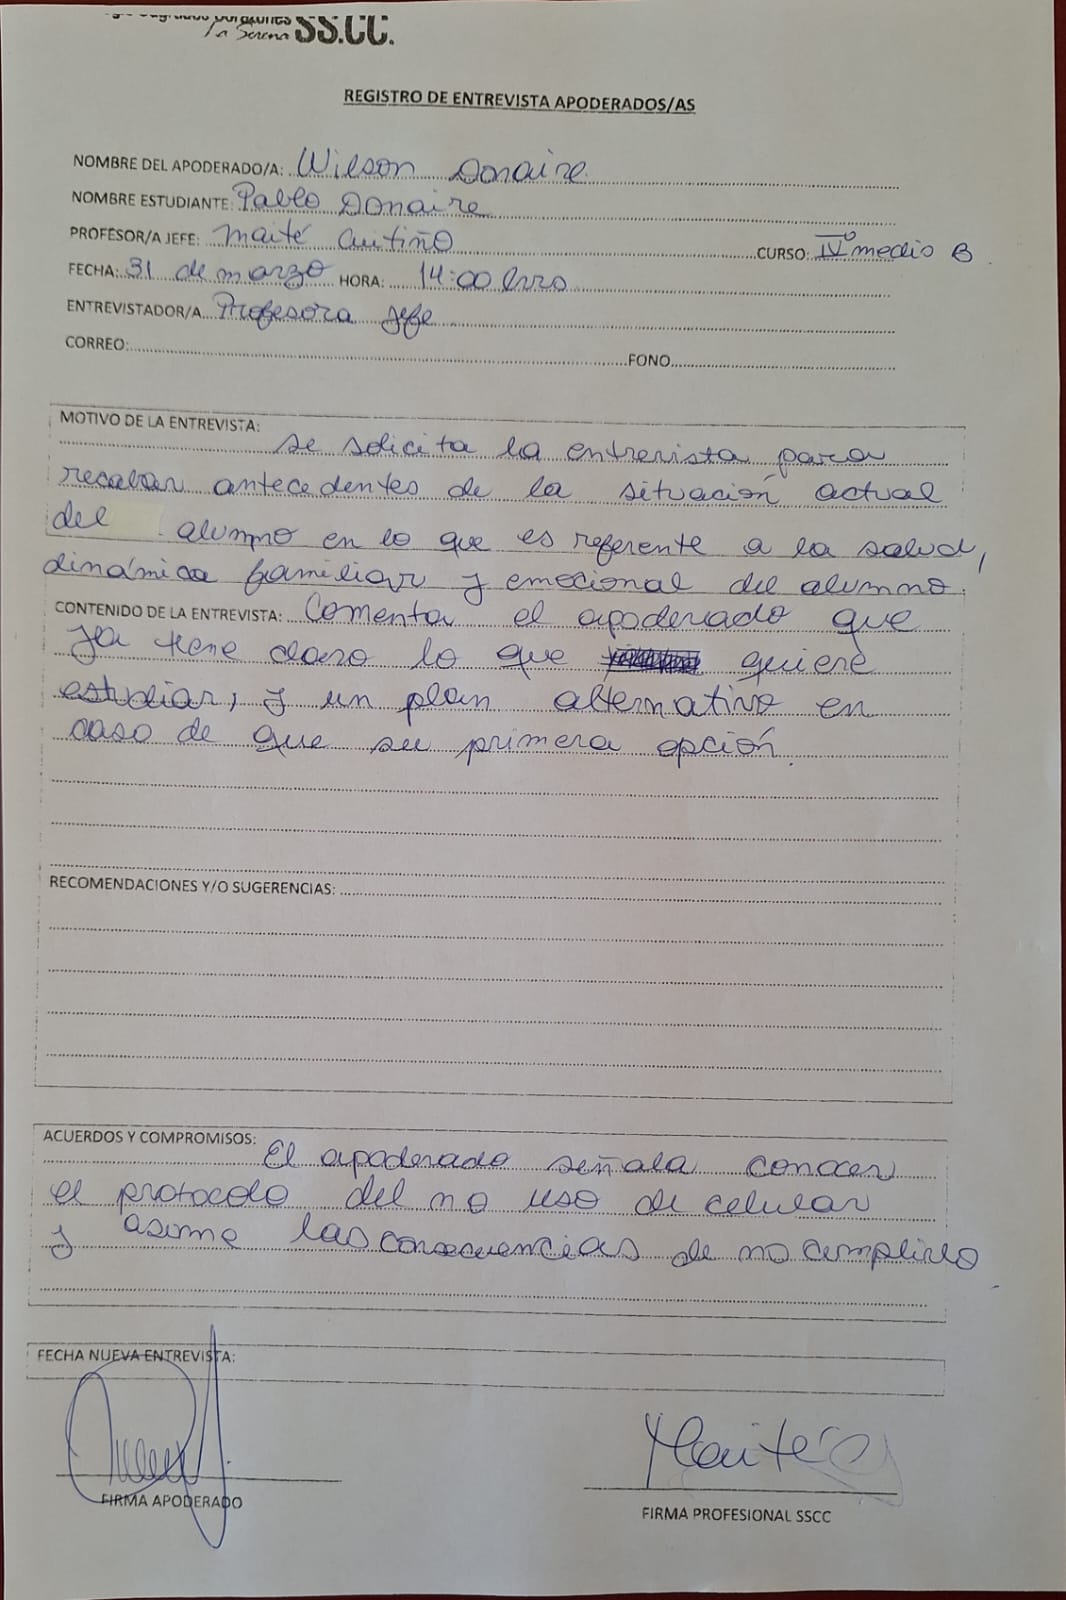 Sagrados Corazones
La Serena SS.CC.
REGISTRO DE ENTREVISTA APODERADOS/AS
NOMBRE DEL APODERADO/A: Wilson Donaire
NOMBRE ESTUDIANTE: Pablo Donaire
PROFESOR/A JEFE: Maité Cutiño CURSO: IVº medio B
FECHA: 31 de marzo HORA: 14:00 hrs
ENTREVISTADOR/A Profesora Jefe
CORREO: FONO
MOTIVO DE LA ENTREVISTA:
se solicita la entrevista para
recabar antecedentes de la situación actual
del alumno en lo que es referente a la salud,
dinámica familiar y emocional del alumno.
CONTENIDO DE LA ENTREVISTA: Comenta el apoderado que
ya tiene claro lo que quiere
estudiar, y un plan alternativo en
caso de que su primera opción.
RECOMENDACIONES Y/O SUGERENCIAS:
ACUERDOS Y COMPROMISOS:
El apoderado señala conocer
el protocolo del no uso de celular
y asume las consecuencias de no cumplirlo
FECHA NUEVA ENTREVISTA:
Maité C
FIRMA APODERADO
FIRMA PROFESIONAL SSCC